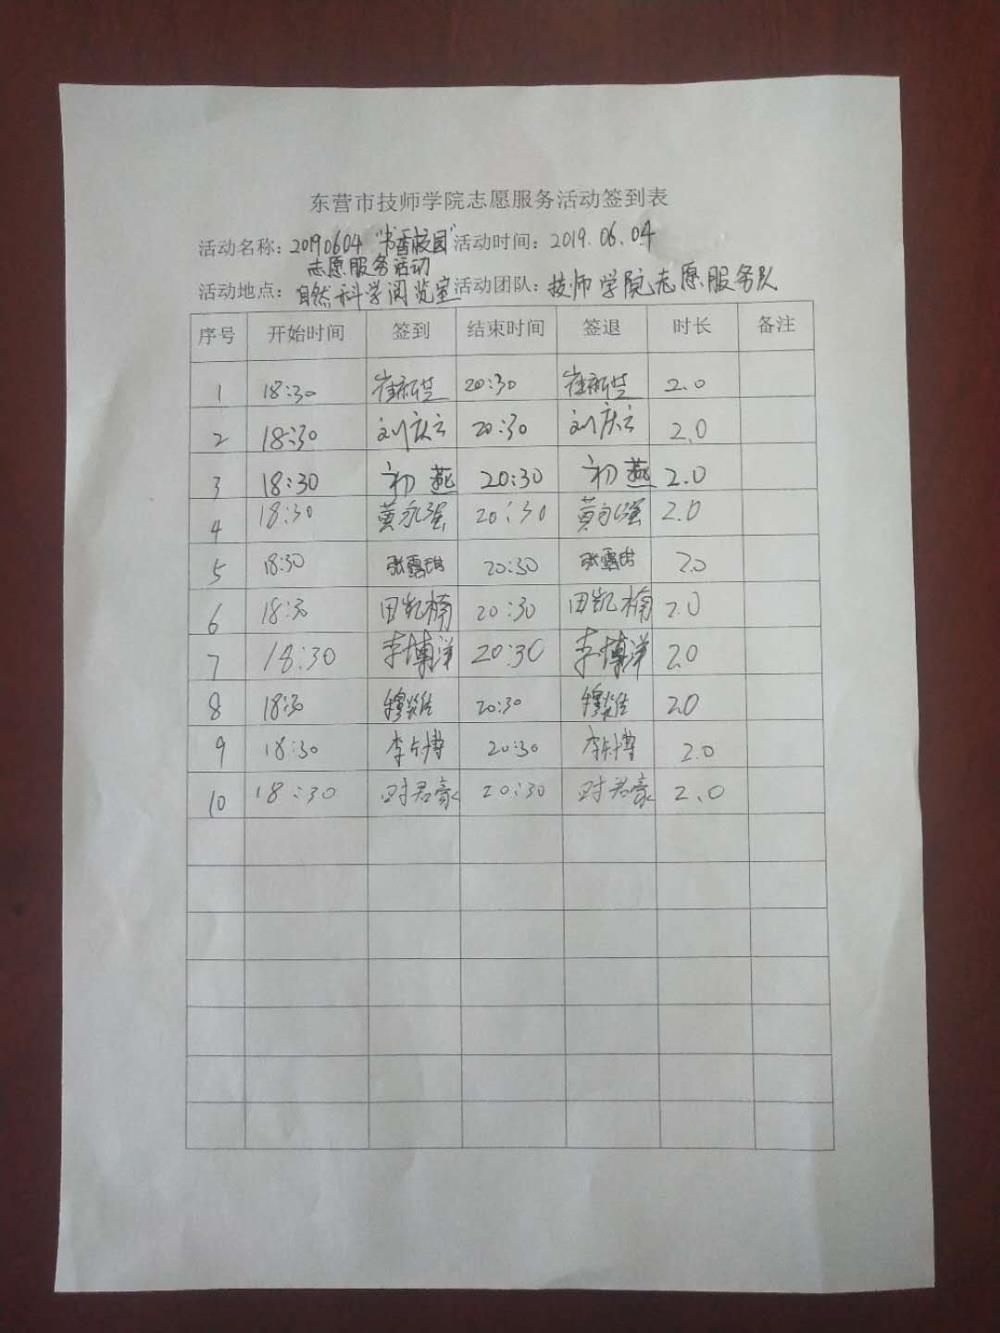 东营市技师学院志愿服务活动签到表
活动名称：20190604 "书香校园" 活动时间：2019.06.04
志愿服务活动
活动地点：自然科学阅览室 活动团队：技师学院志愿服务队
序号 开始时间 签到 结束时间 签退 时长 备注
1 18:30 20:30 2.0
2 18:30 刘庆云 20:30 刘庆云 2.0
3 18:30 初燕 20:30 初燕 2.0
4 18:30 黄永强 20:30 黄永强 2.0
5 18:30 20:30 2.0
6 18:30 田凯楠 20:30 田凯楠 2.0
7 18:30 李博洋 20:30 李博洋 2.0
8 18:30 20:30 2.0
9 18:30 20:30 2.0
10 18:30 20:30 2.0